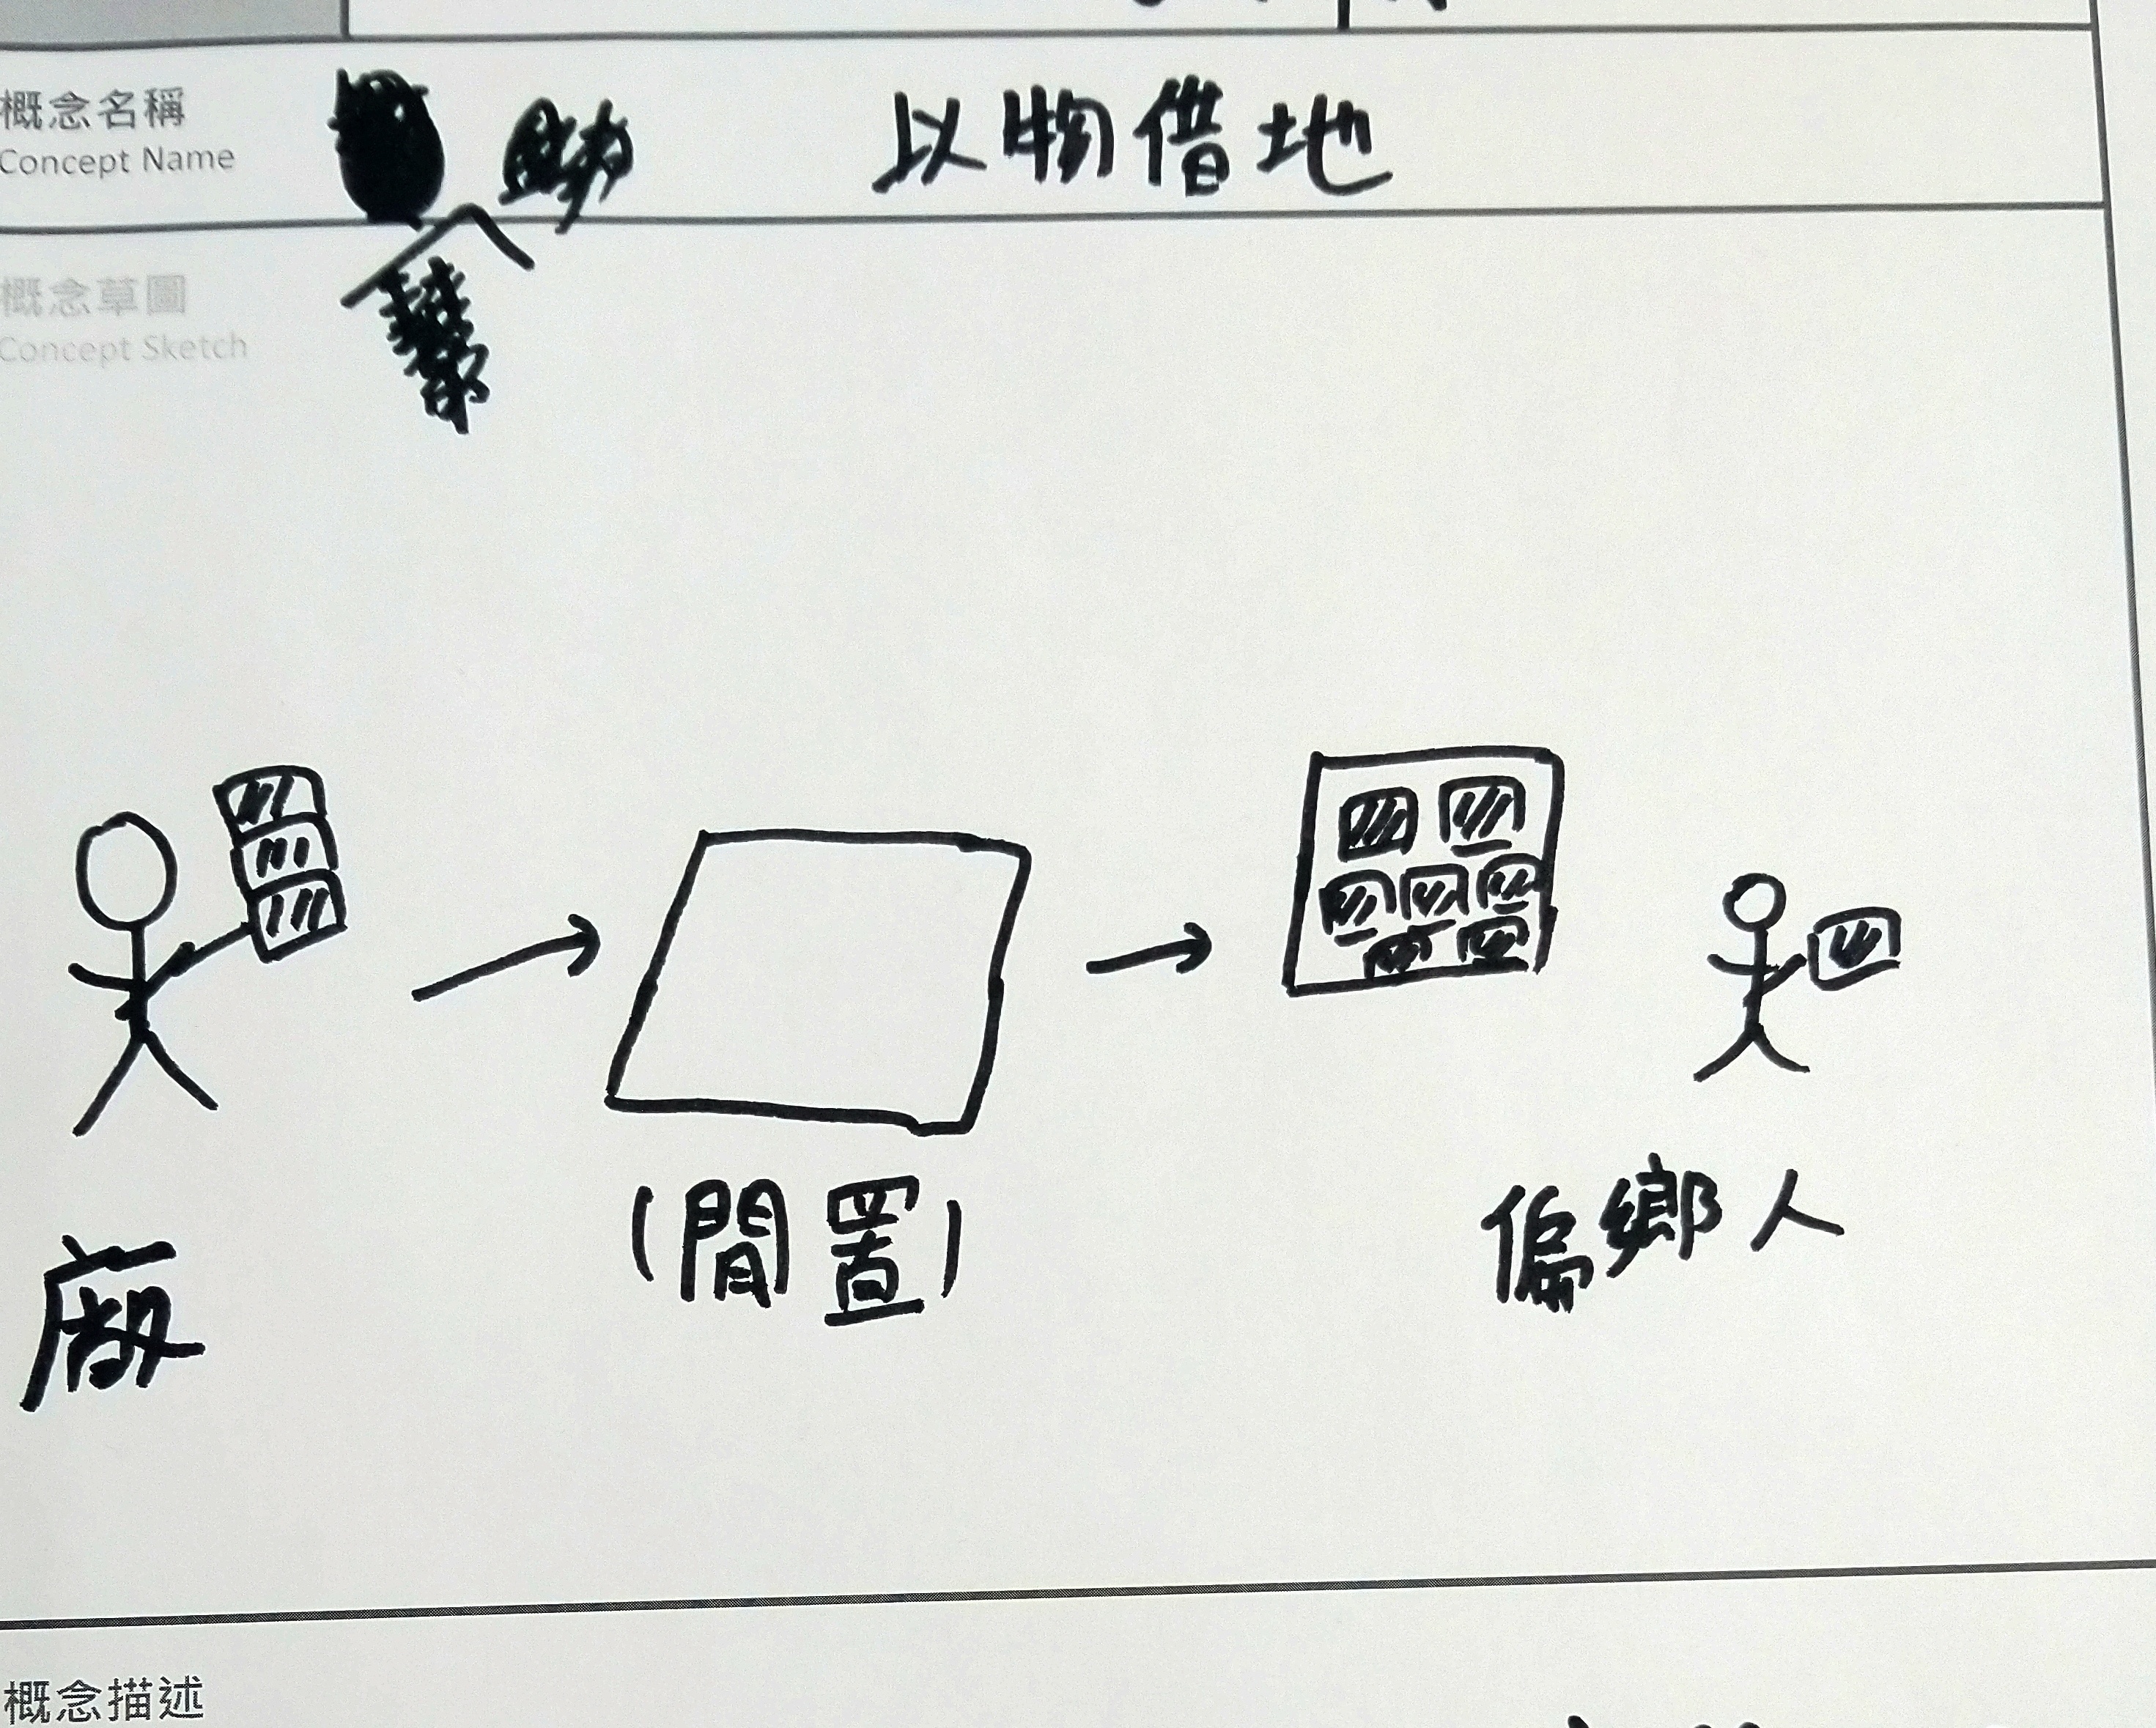 概念名稱
Concept Name
以物借地
概念草圖
Concept Sketch
廠
(閒置)
偏鄉人
概念描述